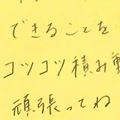 できることを
コツコツ積み重
頑張ってね